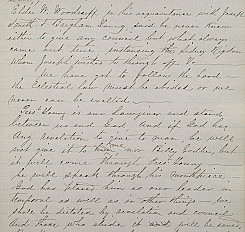 Elder W. Woodruff in his acquaintance with Joseph
Smith & Brigham Young said he never knew
either to give any council but what always
came out true instancing the Sidney Rigdon
whom Joseph wished to through off &c.
We have got to follow the Lord
the Celestial law must be abided or we
never can be exalted.
Pres Young is our Lawgiver and stands
between us and God, and if God has
Any revelation to give to man he will
not give it to me nor Billy Godbe, but
it will come through Pres Young
he will speak through his mouthpiece.
God has placed him as our leader in
temporal as well as in other things we
shall be dictated by revelation and council
And those who abide it will be saved